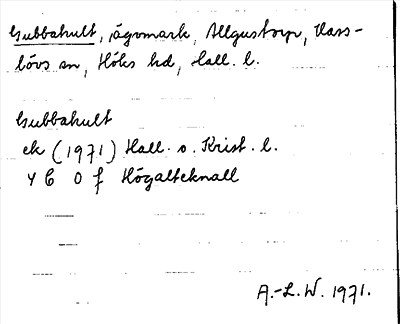 Gubbahult, ägomark, Allgustorp, Hass-
lövs sn, Höks hd, Hall. l.
Gubbahult
ek (1971) Hall. o. Krist. l.
4 C 0 f Högalteknall
A.-L. W. 1971.